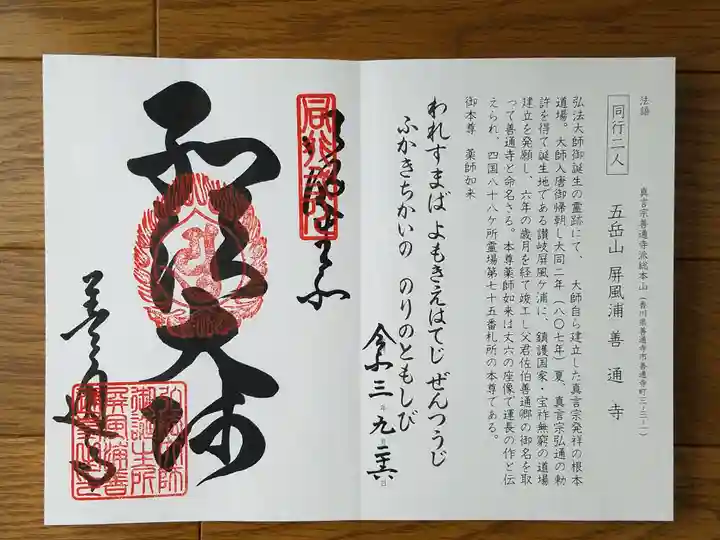 法語
同行二人
真言宗善通寺派総本山（香川県善通寺市善通寺町三-三-一）
五岳山 屏風浦 善通寺
弘法大師御誕生の霊跡にて、大師自ら建立した真言宗発祥の根本
道場。大師入唐御帰朝し大同二年（八〇七年）夏、真言宗弘通の勅
許を得て誕生地である讃岐屏風ヶ浦に、鎮護国家・宝祚無窮の道場
建立を発願し、六年の歳月を経て竣工し父君佐伯善通卿の御名を取
って善通寺と命名さる。本尊薬師如来は丈六の座像で運長の作と伝
えられ、四国八十八ヶ所霊場第七十五番札所の本尊である。
御本尊 薬師如来
われすまば よもきえはてじ ぜんつうじ
ふかきちかいの のりのともしび
令三年九月二六日
同行二人
弘法大師
善通寺
弘法大師
御誕生所
屏風浦善